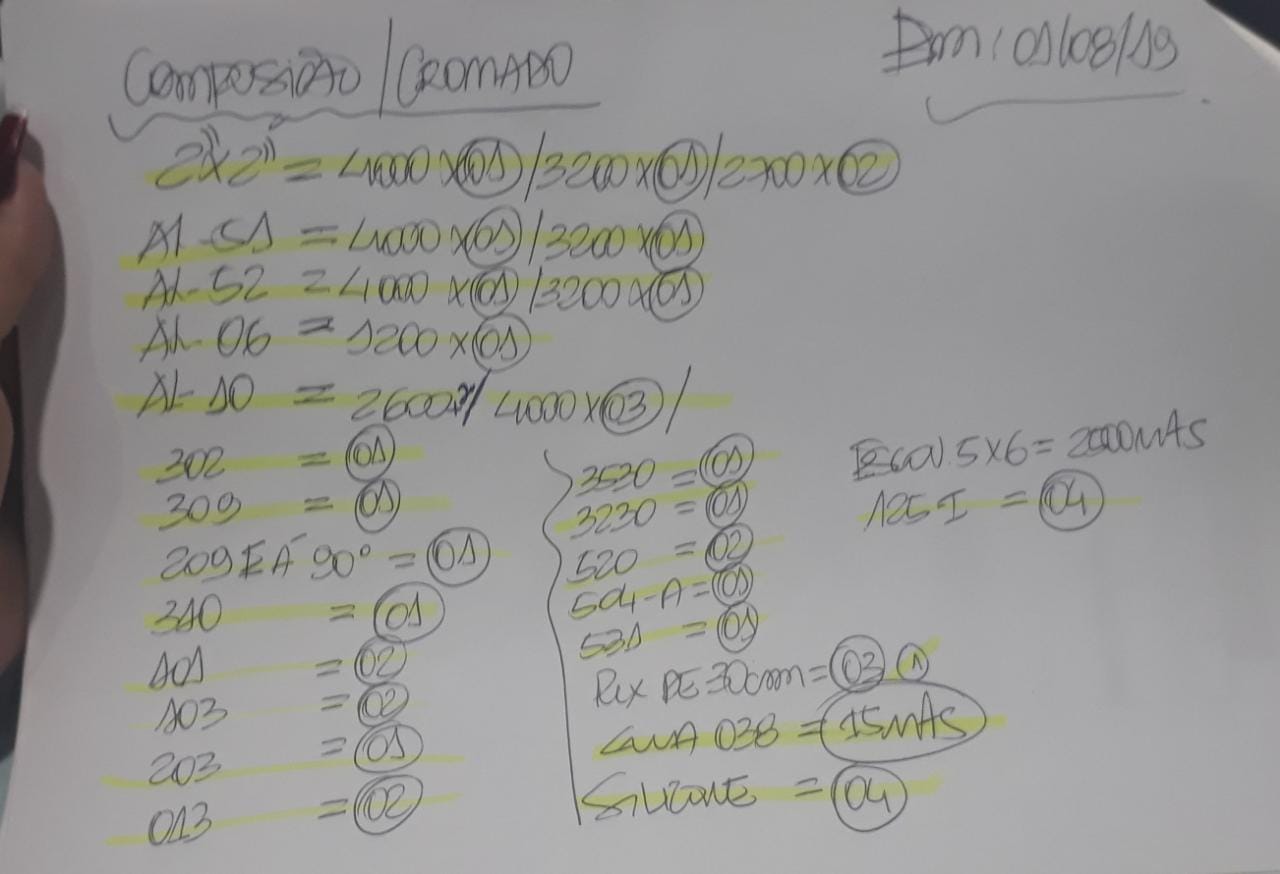 COMPOSIÇÃO / CROMADO
Dom: 01/08/19
2"x2" = 4000 x 01 / 3200 x 01 / 2700 x 02
AL-51 = 4000 x 01 / 3200 x 01
AL-52 = 4000 x 01 / 3200 x 01
AL-06 = 1200 x 01
AL-10 = 2600 / 4000 x 03 /
302 = 01
309 = 01
209 E A 90° = 01
310 = 01
101 = 02
103 = 02
203 = 01
013 = 02
3530 = 01
3230 = 01
520 = 02
504-A = 01
531 = 01
PUX DE 30cm = 03 1
038 = 15 MAS
SILICONE = 04
5x6 = 2000 MAS
125 I = 04